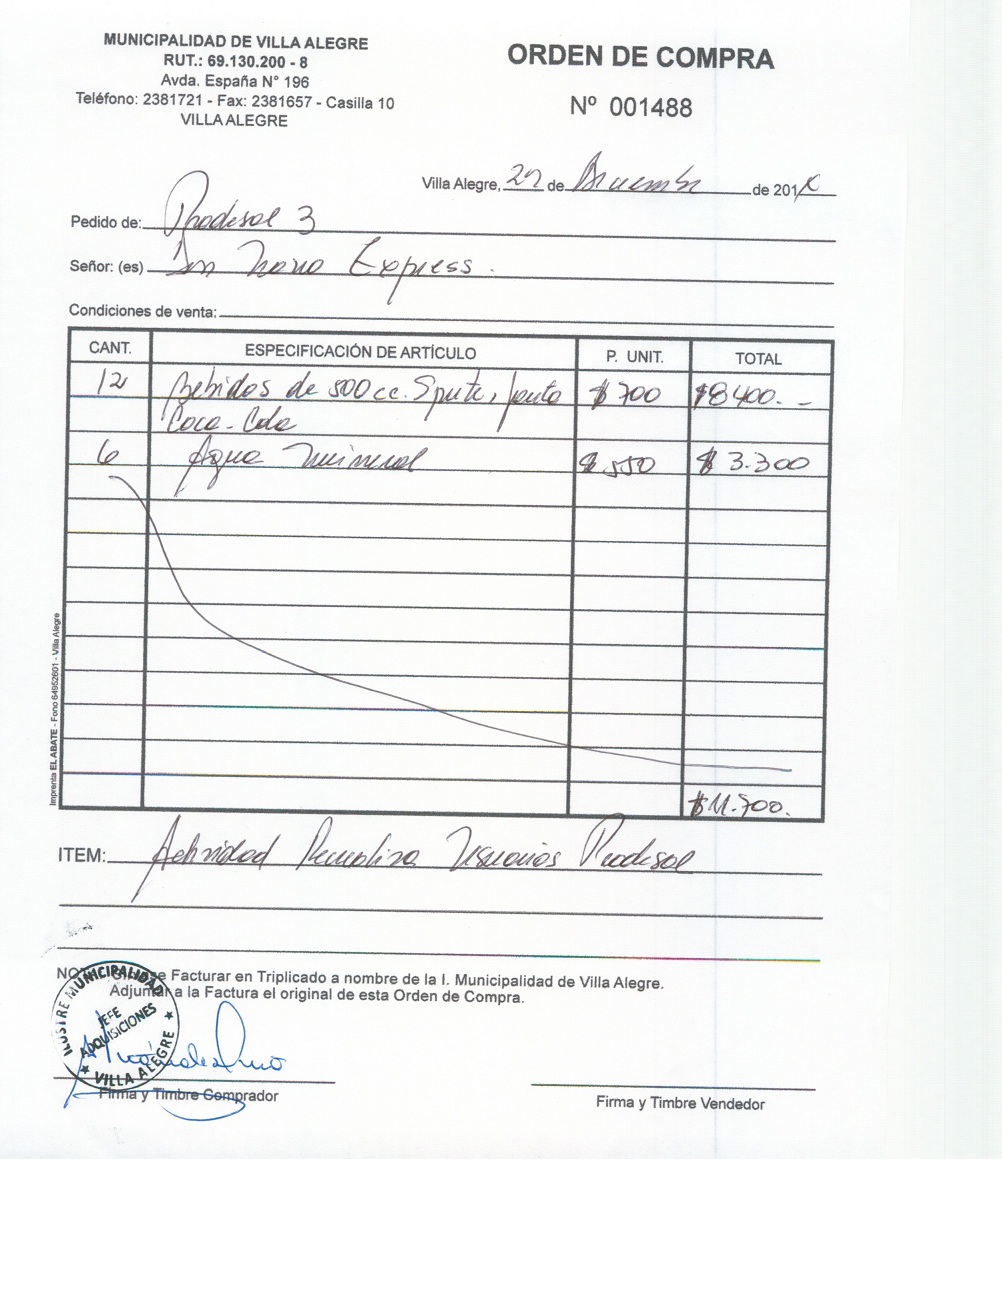 MUNICIPALIDAD DE VILLA ALEGRE
RUT.: 69.130.200 - 8
Avda. España N° 196
Teléfono: 2381721 - Fax: 2381657 - Casilla 10
VILLA ALEGRE
ORDEN DE COMPRA
Nº 001488
Villa Alegre, de Diciembre de 201
Pedido de: Prodesal 3
Señor: (es) Express.
Condiciones de venta:
CANT. ESPECIFICACIÓN DE ARTÍCULO P. UNIT. TOTAL
12 Bebidas de 500 cc. Sprite, fanta $ 700 $8.400.-
Coca-Cola
6 Agua Mineral $ 550 $ 3.300
$ 11.700.
ITEM: Actividad Usuarios Prodesal
NOTA: Sírvase Facturar en Triplicado a nombre de la I. Municipalidad de Villa Alegre.
Adjuntar a la Factura el original de esta Orden de Compra.
ILUSTRE MUNICIPALIDAD
JEFE
ADQUISICIONES
★ VILLA ALEGRE ★
Firma y Timbre Comprador
Firma y Timbre Vendedor
Imprenta EL ABATE - Fono 64952601 - Villa Alegre